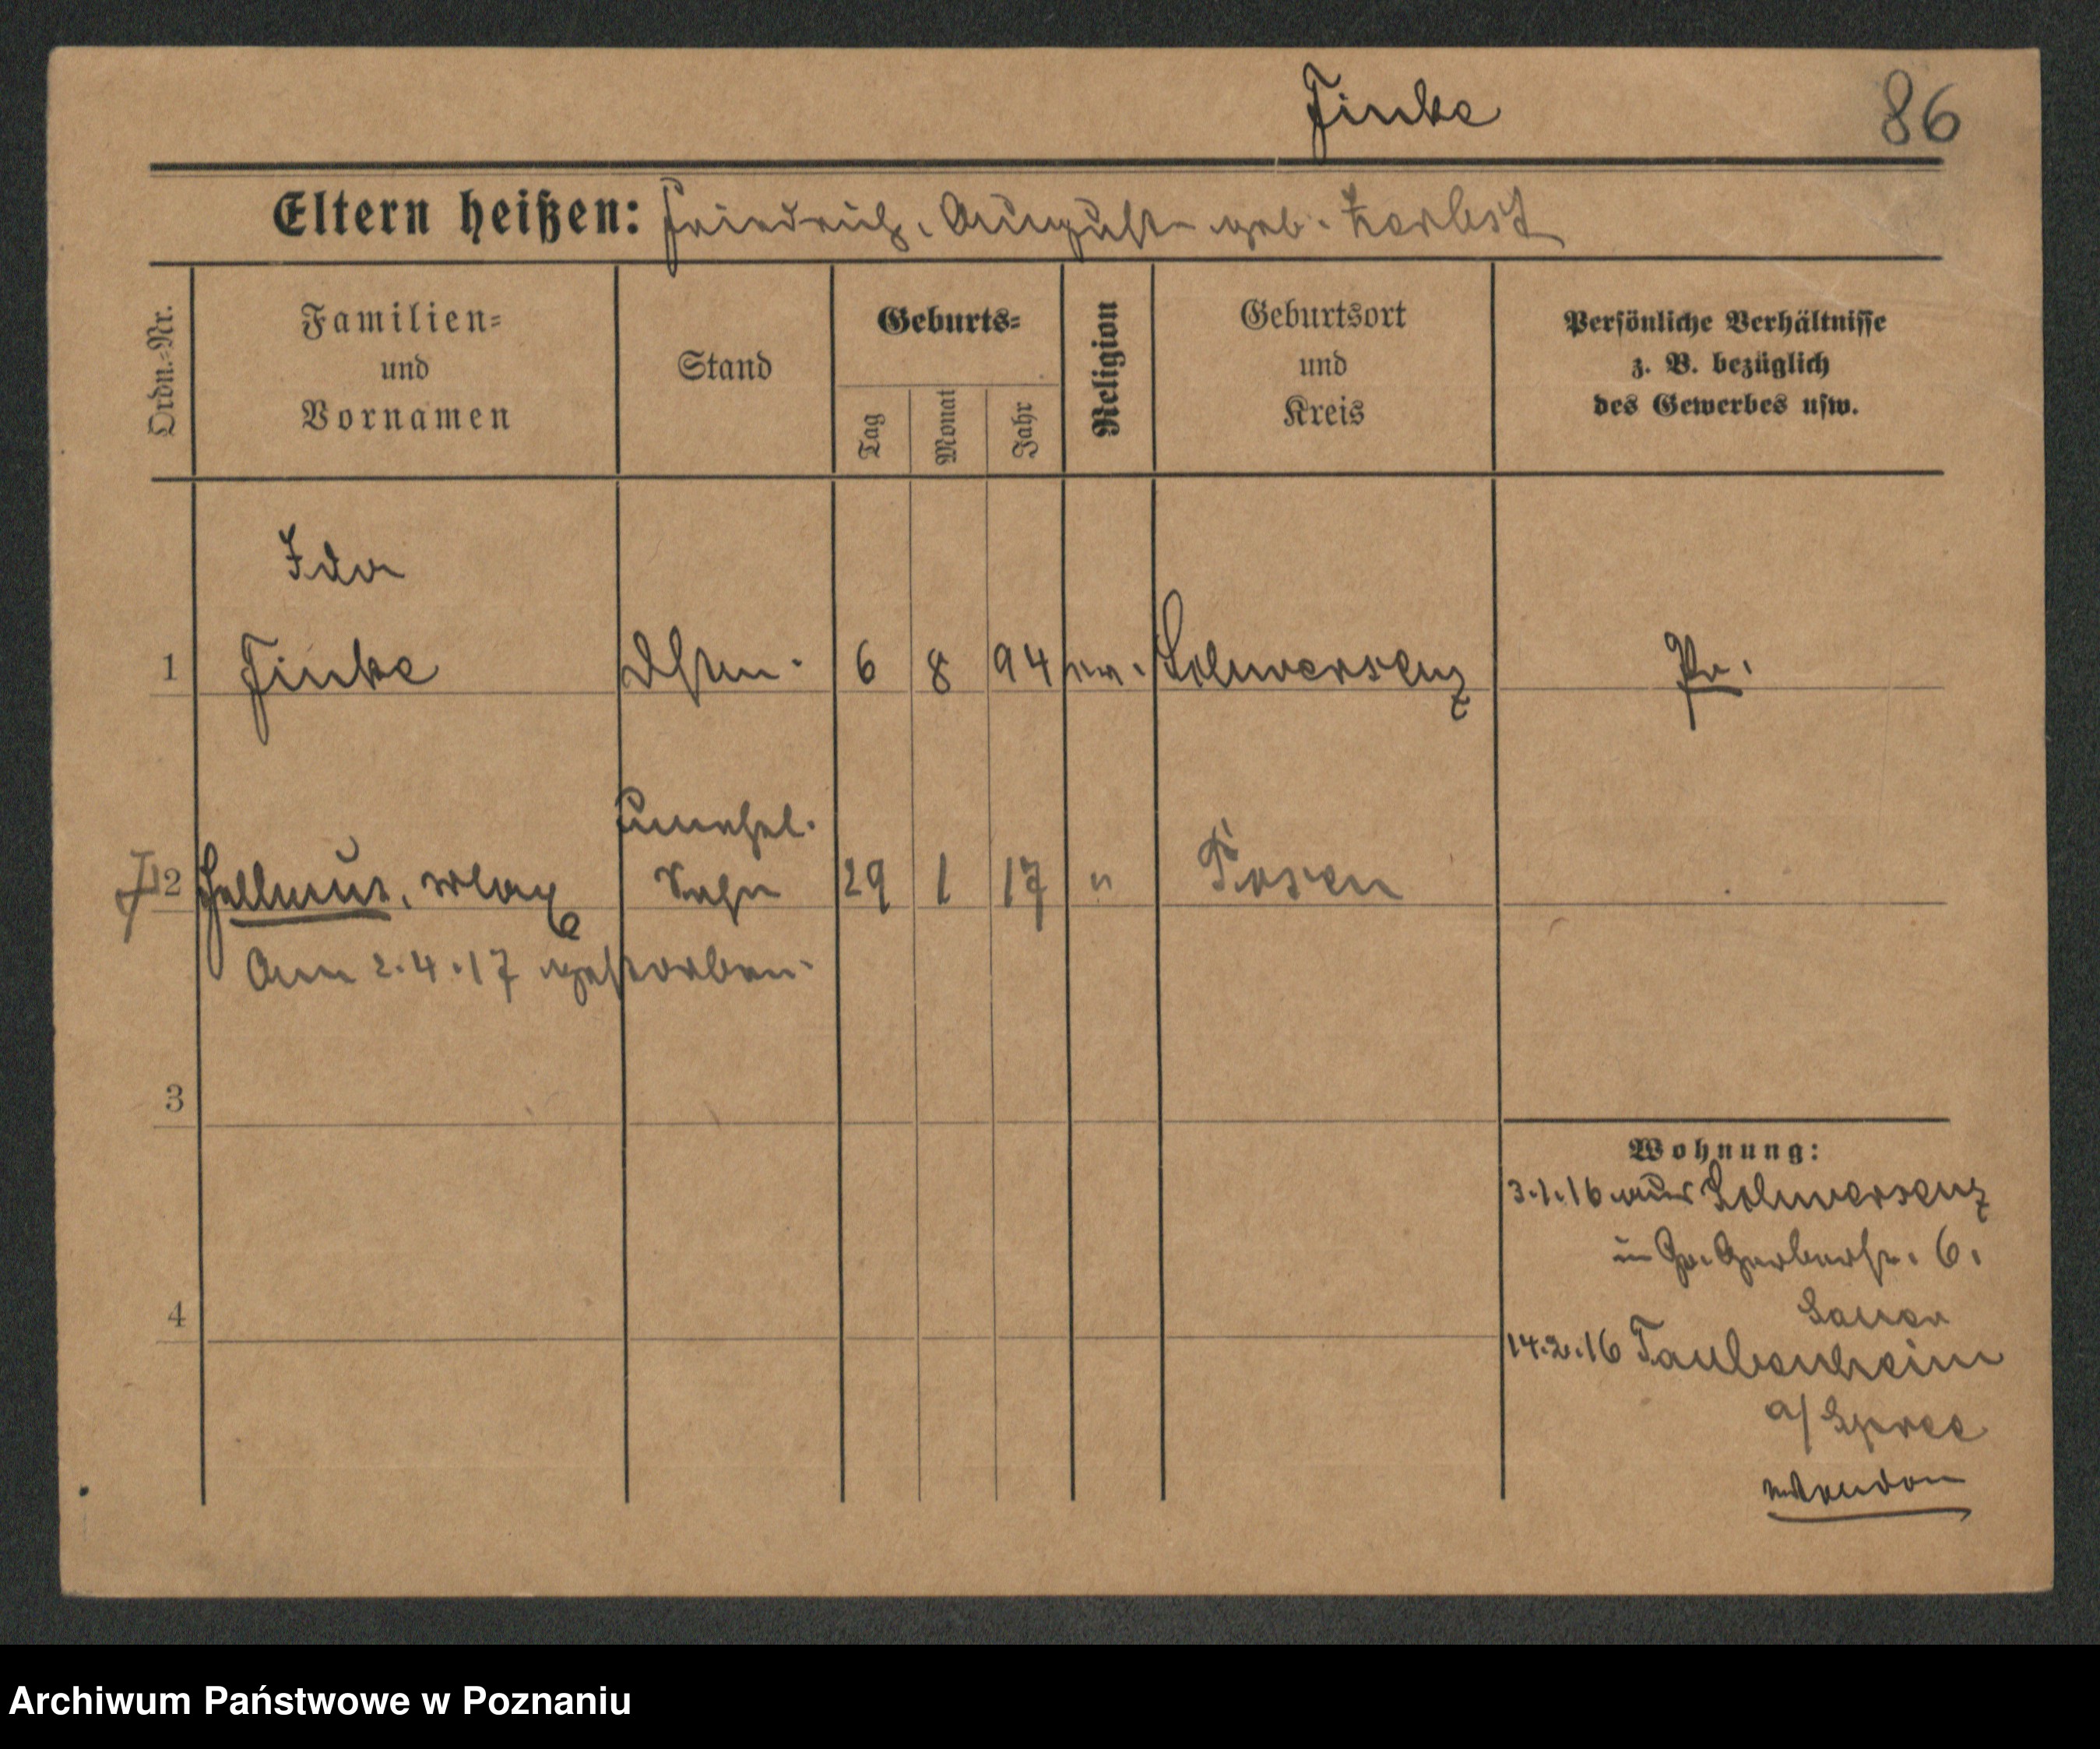 Finke
86
Eltern heißen: Friedrich, Auguste geb. Zerbst
Ordn.-Nr.
Familien-
und
Vornamen
Stand
Geburts-
Tag
Monat
Jahr
Religion
Geburtsort
und
Kreis
Persönliche Verhältnisse
z. B. bezüglich
des Gewerbes usw.
Ida
1 Finke
6 8 94 ev. Schwersenz
Pr.
unehel.
2 Hellmut, Max Sohn 29 1 17 " Posen
Am 2.4.17 gestorben.
3
4
Wohnung:
3.1.16 aus Schwersenz
in Gr. Gerberstr. 6.
14.2.16 Taubenheim
a/Spree